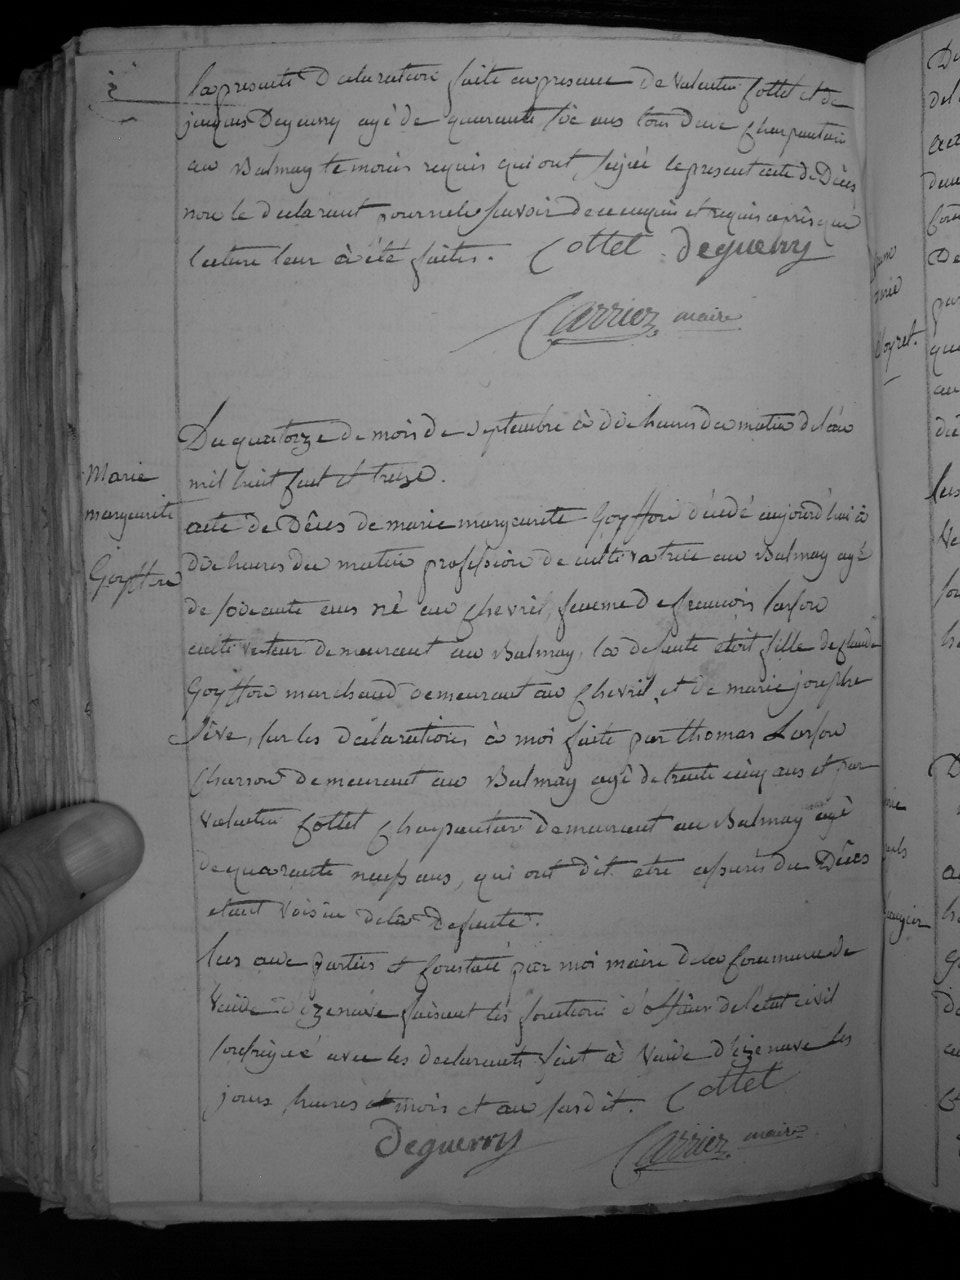 la presente Declaration faite en presence De Valentin Cottet et de
jacques Deguerry agé de quarante six ans tous deux charpentier
au Balmay temoins requis qui ont signé le present acte de Dêcês
non le declarant pour ne le savoir de ce enquis et requis aprês que
lecture leur à été faites. Cottet Deguerry
Carrier maire
Du quatorze de mois de septembre à dix heures du matin de l'an
mil huit sent et treize.
Marie
marguerite
Goyffon
acte de Dêcês de marie marguerite Goyffon décédé aujourd'hui à
dix heures du matin profession de cultivatrice au Balmay agé
de soixante ans né au Chevril, femme de francois
cultivateur demeurant au Balmay, la defunte étoit fille de claude
Goyffon marchand demeurant au Chevril, et de marie josephe
Sêve, sur les déclarations à moi faite par thomas
Charron demeurant au Balmay agé de trente cinq ans et par
Valentin Cottet Charpentier demeurant au Balmay agé
de quarante neuf ans, qui ont dit etre assurés du Dêcês
etant voisin de la Defunte.
les aux parties et constaté par moi maire de la Commune de
Vieude Dizenave faisant les fonctions d'officier de l'etat civil
soussigné avec les declarants fait à Vieude d'izenave les
jours heures et mois et an susdit. Cottet
Deguerry Carrier maire